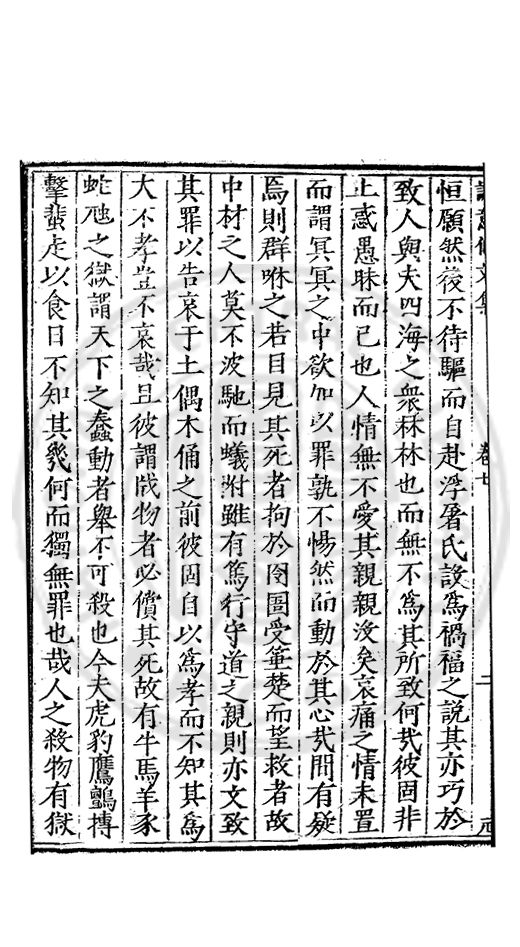 恒願然後不待驅而自赴浮屠氏設爲禍福之説其亦巧於
致人與夫四海之衆秝林也而無不爲其所致何㢤彼固非
止惑愚昧而已也人情無不愛其親親没矣哀痛之情未置
而謂冥冥之中欲加以罪孰不惕然而動於其心㢤間有疑
焉則群咻之若目見其死者拘於囹圄受箠楚而望救者故
中材之人莫不波馳而蟻附雖有篤行守道之親則亦文致
其罪以告哀于土偶木俑之前彼固自以爲孝而不知其爲
大不孝豈不哀哉且彼謂戕物者必償其死故有牛馬羊豕
蛇虺之獄謂天下之蠢動者舉不可殺也今夫虎豹鷹鸇搏
擊蜚走以食日不知其幾何而獨無罪也哉人之殺物有獄